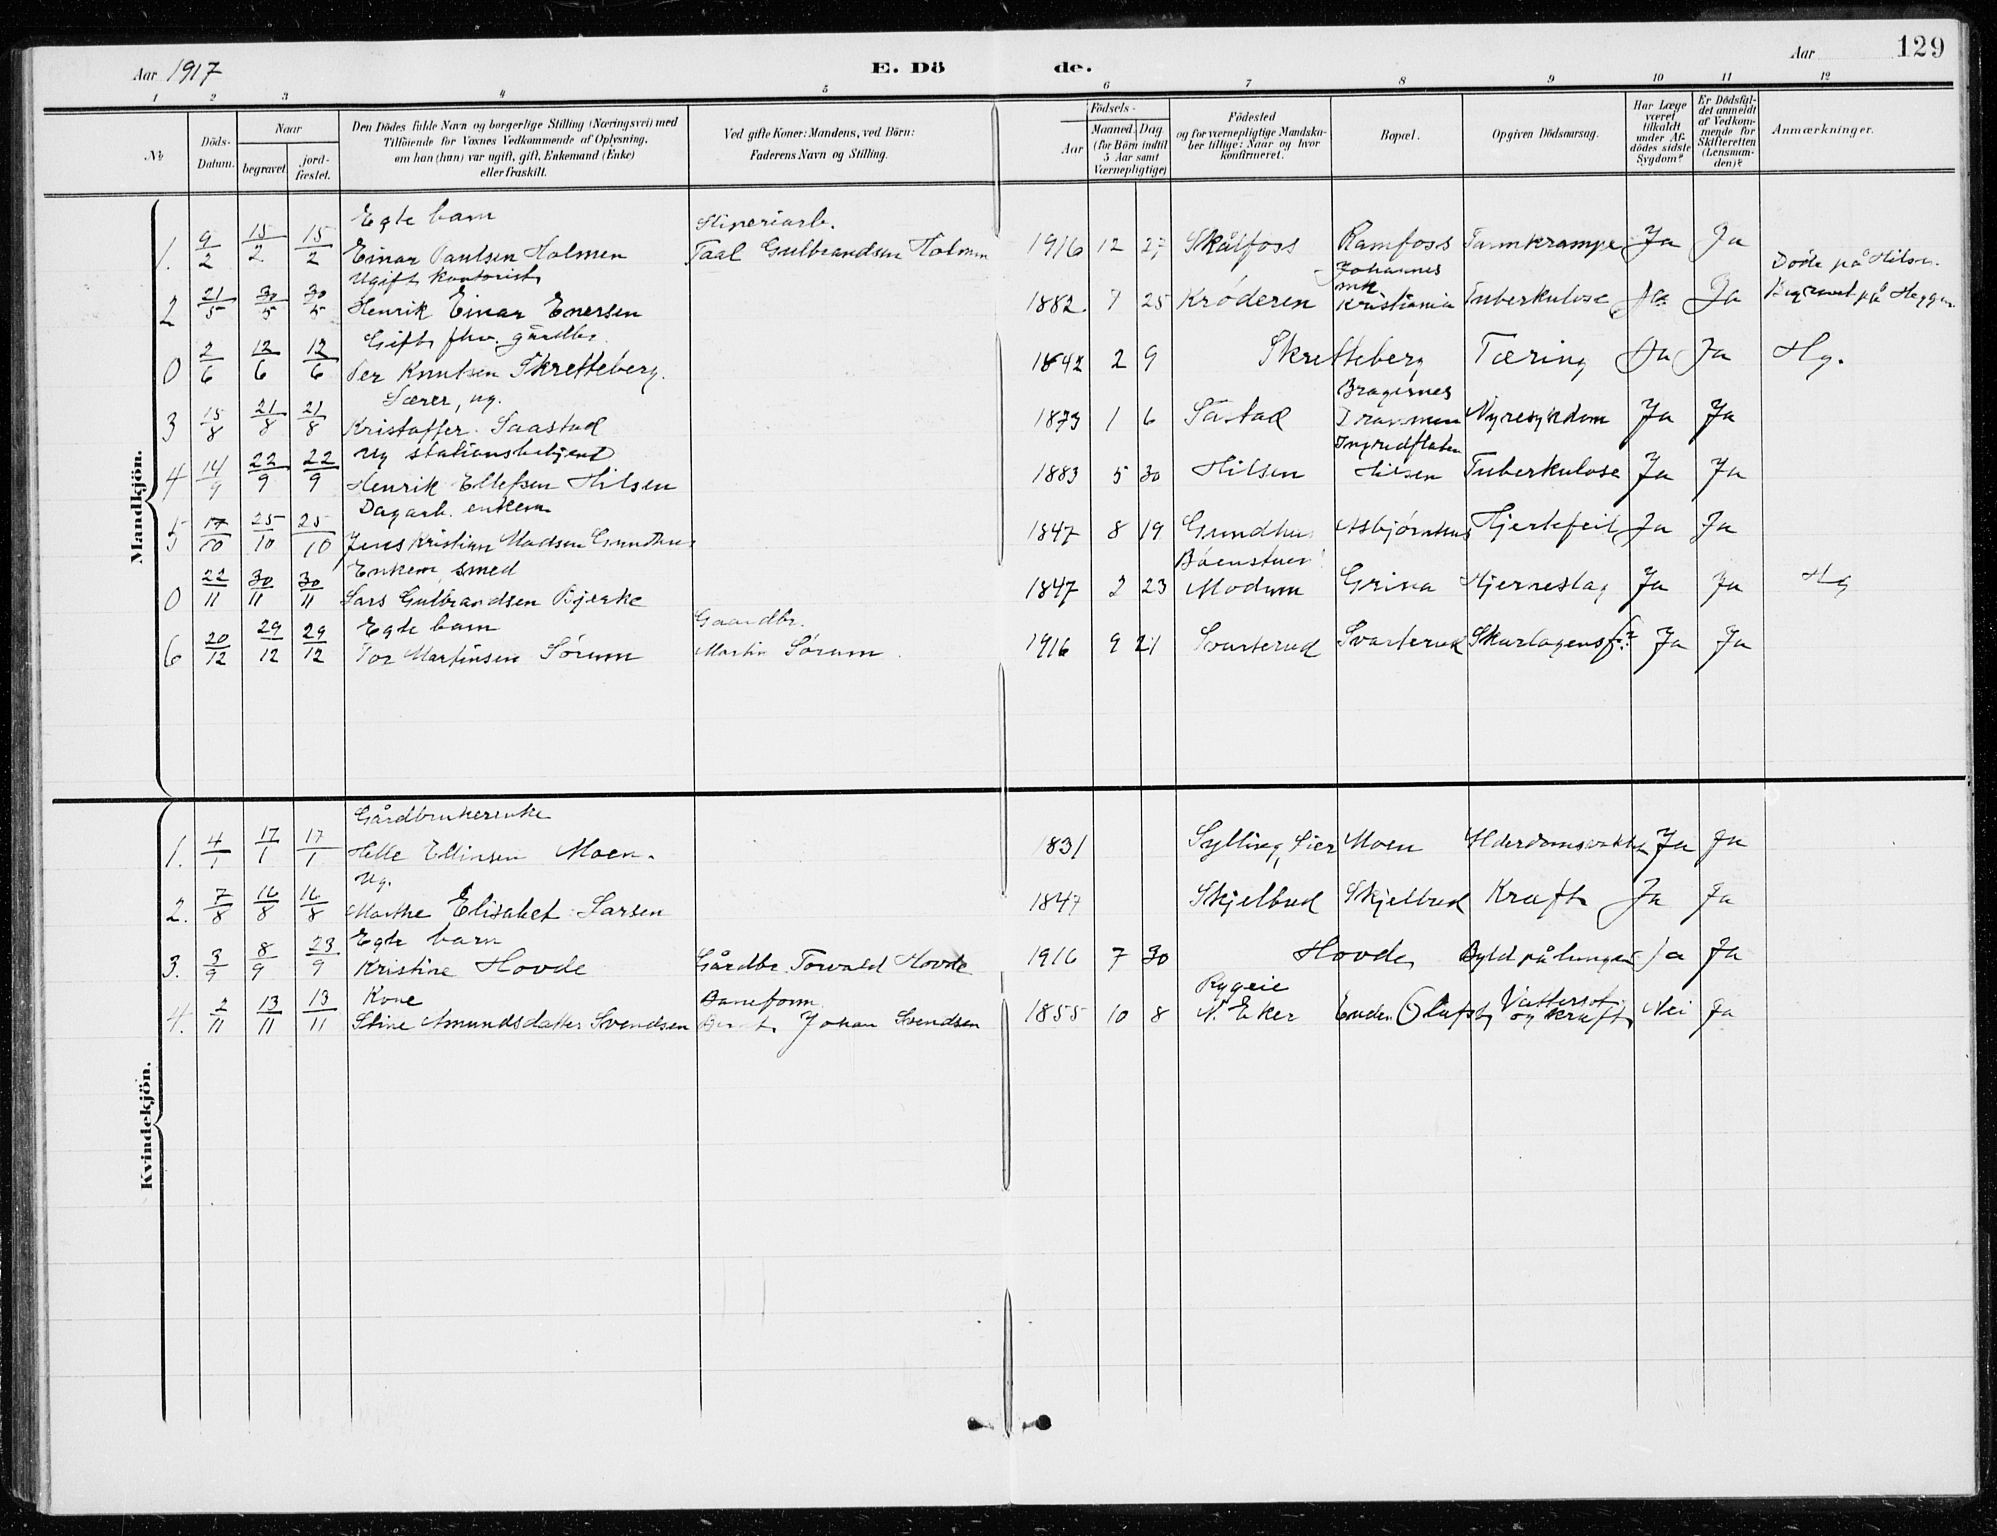 Aar 1917 E. Dö de. Aar 129
1 2 3 4 5 6 7 8 9 10 11 12
No. Döds-Datum. Naar begravet. jord-fæstet. Den Dödes fulde Navn og borgerlige Stilling (Næringsvei) med Tilföiende for Voxnes Vedkommende af Oplysning, om han (hun) var ugift, gift, Enkemand (Enke) eller fraskilt. Ved gifte Koner: Mandens, ved Börn: Faderens Navn og Stilling. Födsels- Aar Maaned Dag (for Börn indtil 5 Aar samt Værnepligtige) Födested og for værnepligtige Mandskaber tillige: Naar og hvor konfirmeret. Bopæl. Opgiven Dödsaarsag. Har Læge været tilkaldt under Afdödes sidste Sygdom? Er Dödsfaldet anmeldt af Vedkommende for Skifteretten (Lensmanden)? Anmærkninger.
Mandkjön.
Egte barn Sliperiarb.
1. 9/2 15/2 15/2 Einar Paulsen Holmen Paal Gulbrandsen Holmen 1916 12 27 Skålfoss Ramfoss Tarmkrampe Ja Ja
Ugift kontorist Johannes Döde på Hilsen.
mk
2 21/5 30/5 30/5 Henrik Einar Enersen 1882 7 25 Krøderen Kristiania Tuberkulose Ja Ja Begravet på Heggen
Gift fhv. gårdbr.
0 2/6 12/6 12/6 Per Knutsen Skretteberg. 1842 2 9 Skretteberg Tæring Ja Ja Hg.
Lærer, ug. Bragernes
3 15/8 21/8 21/8 Kristoffer Saastad 1873 1 6 Såstad Drammen Nyresykdom Ja Ja
Ug stationsbetjent Ingridflaten
4 14/9 22/9 22/9 Henrik Ellefsen Hilsen 1883 5 30 Hilsen Hilsen Tuberkulose Ja Ja
Dagarb. enkem
5 17/10 25/10 25/10 Jens Kristian Madsen Grundhus 1847 8 19 Grundhus Asbjørnhus Hjertefeil Ja Ja
Enkem, smed
0 22/11 30/11 30/11 Lars Gulbrandsen Bjerke 1847 2 23 Modum Grina Hjerneslag Ja Ja Hg
Egte barn Gaardbr.
6 20/12 29/12 29/12 Tor Martinsen Sørum Martin Sørum 1916 9 21 Svarterud Svarterud Skarlagensf. ? Ja Ja
Kvindekjön.
Gårdbrukerenke
1. 4/1 17/1 17/1 Helle Ellinsen Moen. 1831 Sylling, Lier Moen Alderdomsvakhet Ja Ja
Ug.
2. 7/8 16/8 16/8 Marthe Elisabet Larsen 1847 Skjelbred Skjelbred Kræft Ja Ja
Egte barn
3. 3/9 8/9 23/9 Kristine Hovde Gårdbr. Torvald Hovde 1916 7 30 Hovde Byld på lungen Ja Ja
Kone Baneform. Rygeie Vattersot
4. 2/11 13/11 13/11 Stine Amundsdatter Svendsen Bernt Johan Svendsen 1855 10 8 N. Eker Olafsby og kræft Nei Ja